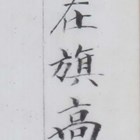 在旗高